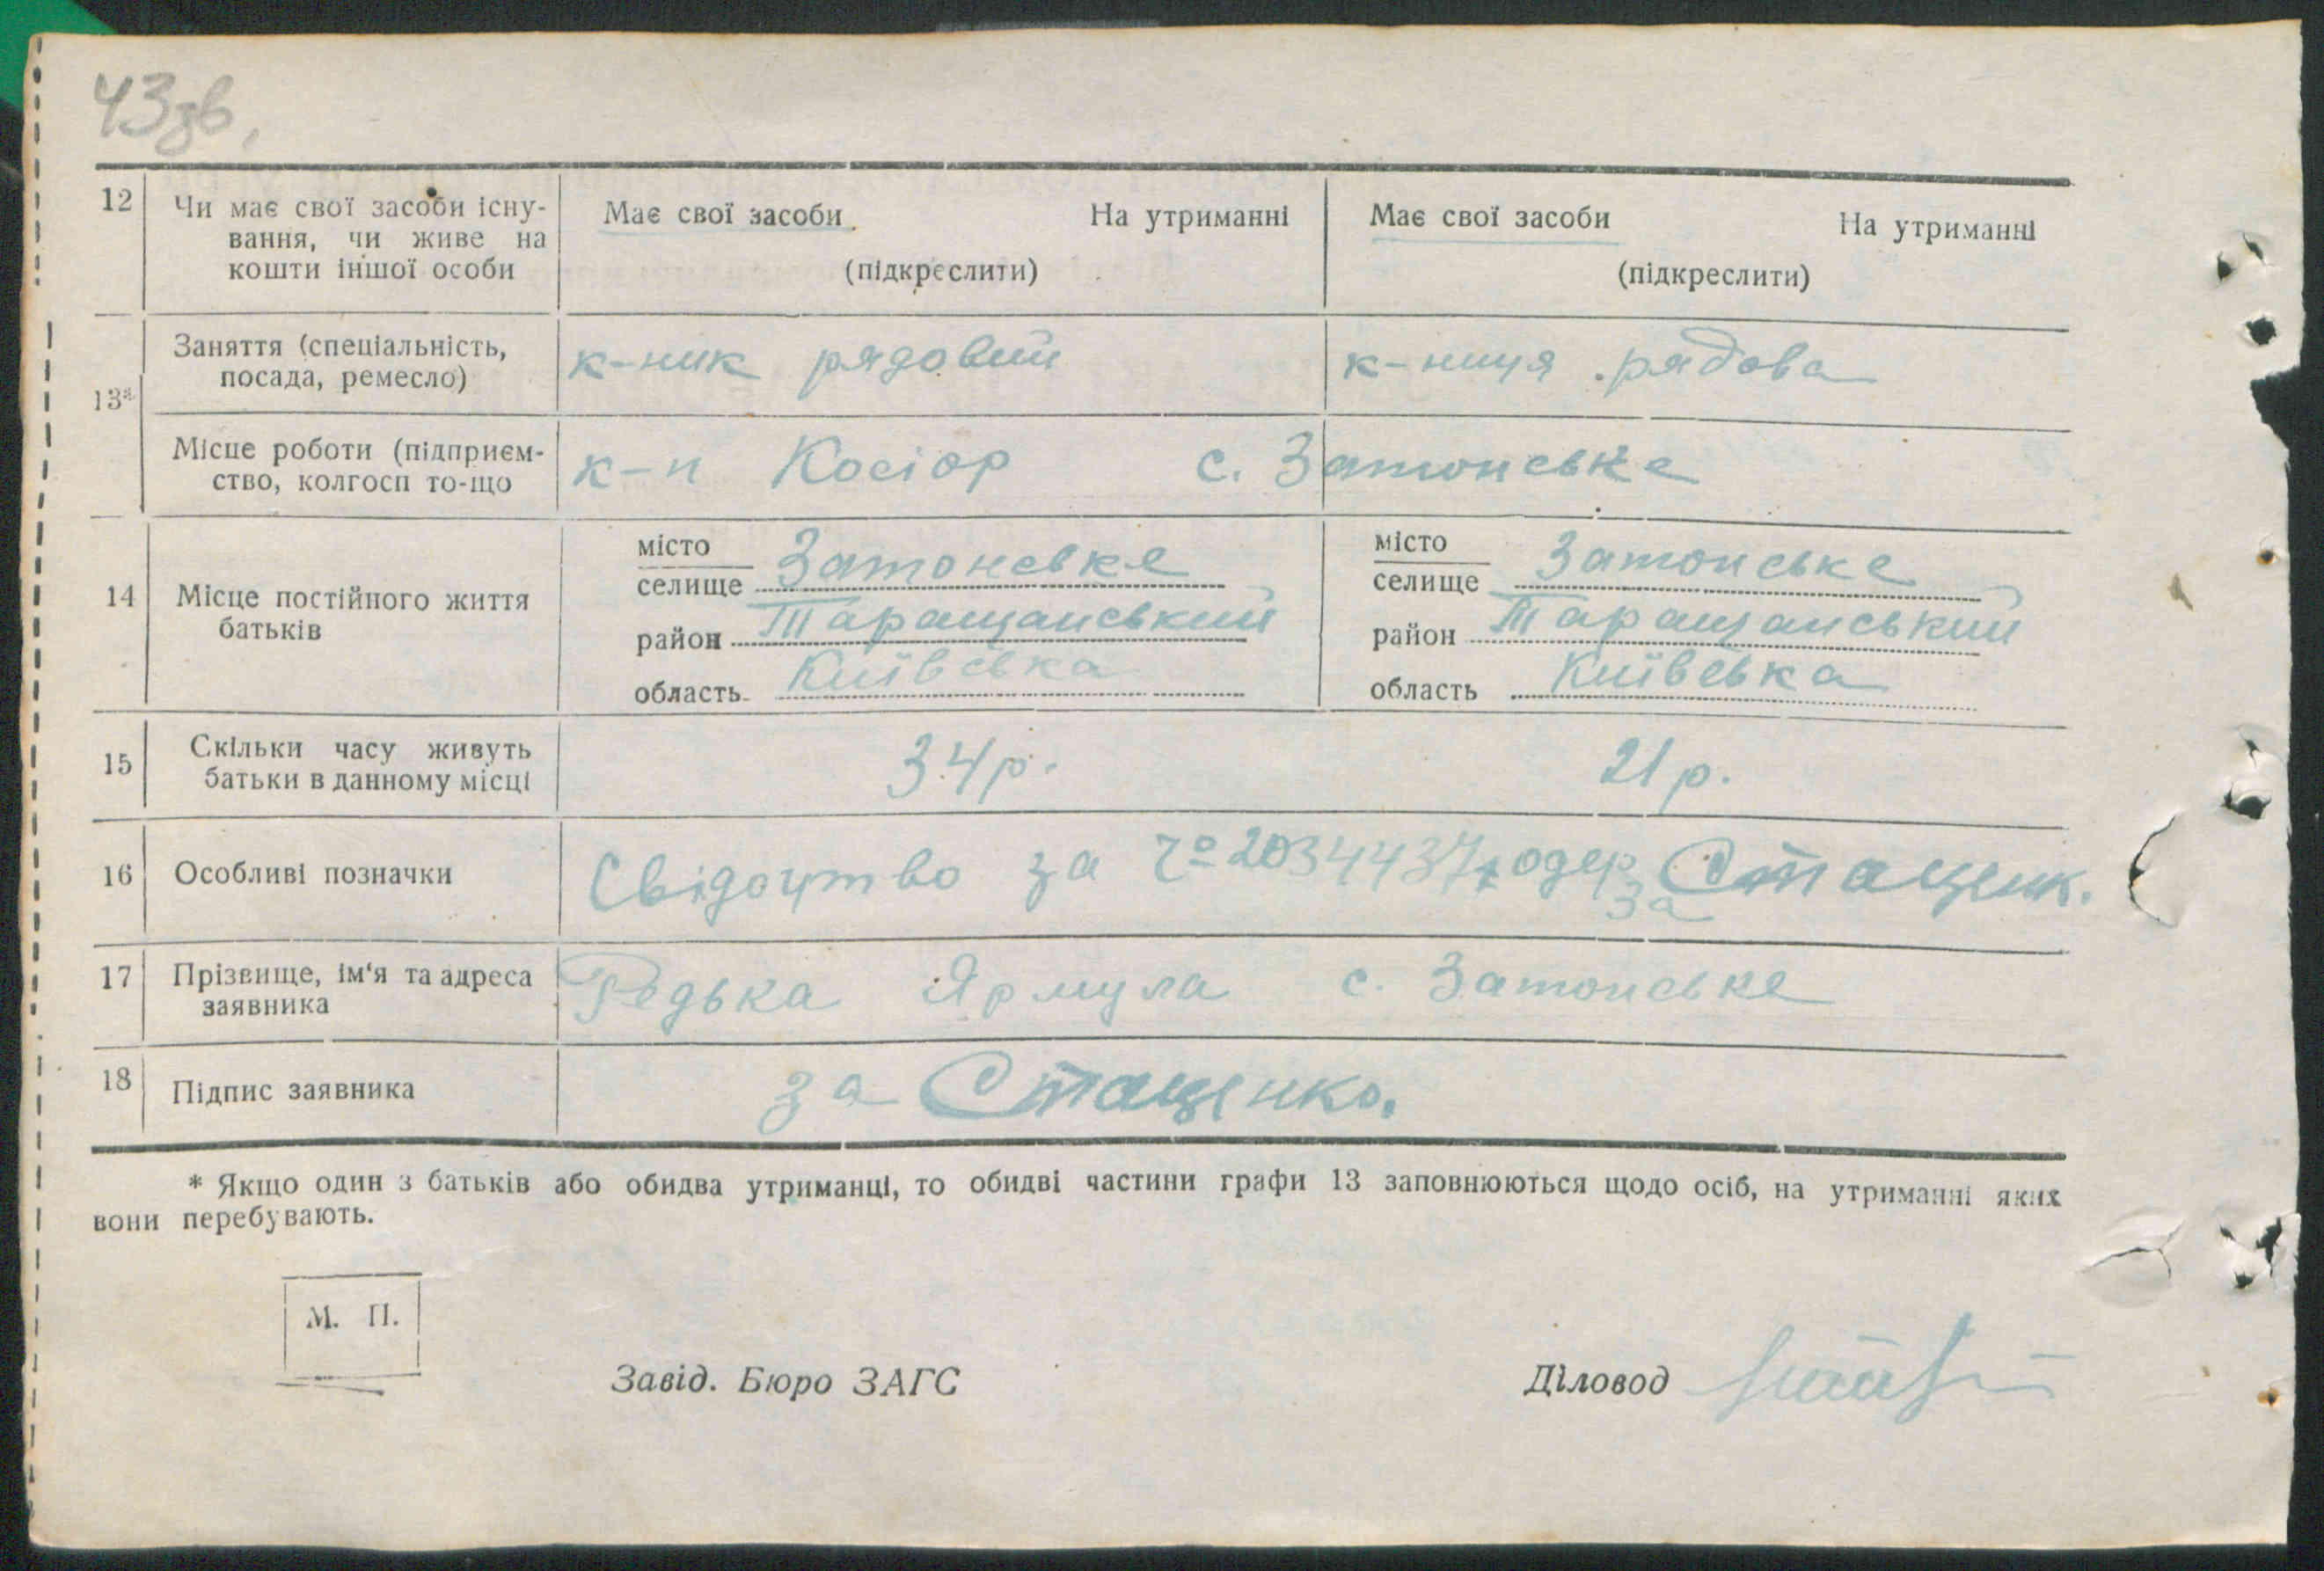 43зв.
12 Чи має свої засоби існу- Має свої засоби На утриманні Має свої засоби На утриманні
вання, чи живе на
кошти іншої особи (підкреслити) (підкреслити)
Заняття (спеціальність, к-ник рядовий к-ниця рядова
посада, ремесло)
13*
Місце роботи (підприєм- к-п Косіор с. Затонське
ство, колгосп то-що
місто Затонське місто Затонське
селище селище
14 Місце постійного життя район Таращанський район Таращанський
батьків
область Київська область Київська
15 Скільки часу живуть 34 р. 21 р.
батьки в данному місці
16 Особливі позначки Свідоцтво за одер за Стащенк.
17 Прізвище, ім'я та адреса Редька с. Затонське
заявника
18 Підпис заявника за Стащенко.
* Якщо один з батьків або обидва утриманці, то обидві частини графи 13 заповнюються щодо осіб, на утриманні яких
вони перебувають.
М. П.
Завід. Бюро ЗАГС Діловод